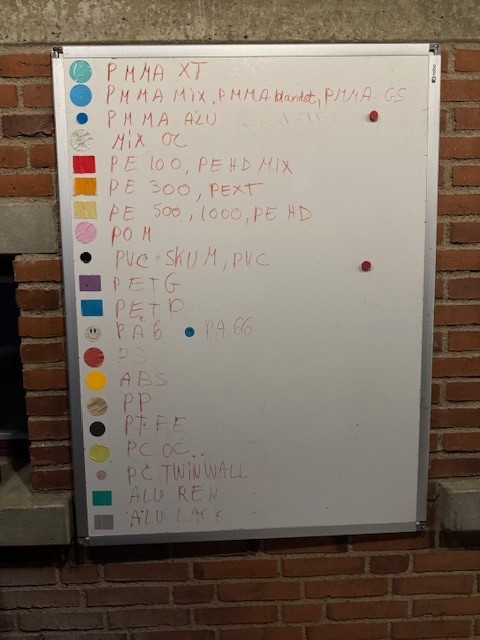 PMMA XT
PMMA MIX, PMMA blandet, PMMA GS
PMMA ALU
MIX OC
PE 100, PE HD MIX
PE 300, PEXT
PE 500, 1000, PE HD
POM
PVC-SKUM, PVC
PETG
PETP
PA 6 PA 66
PS
ABS
PP
PTFE
PC OC..
PC TWINWALL
ALU REN
ALU LACK